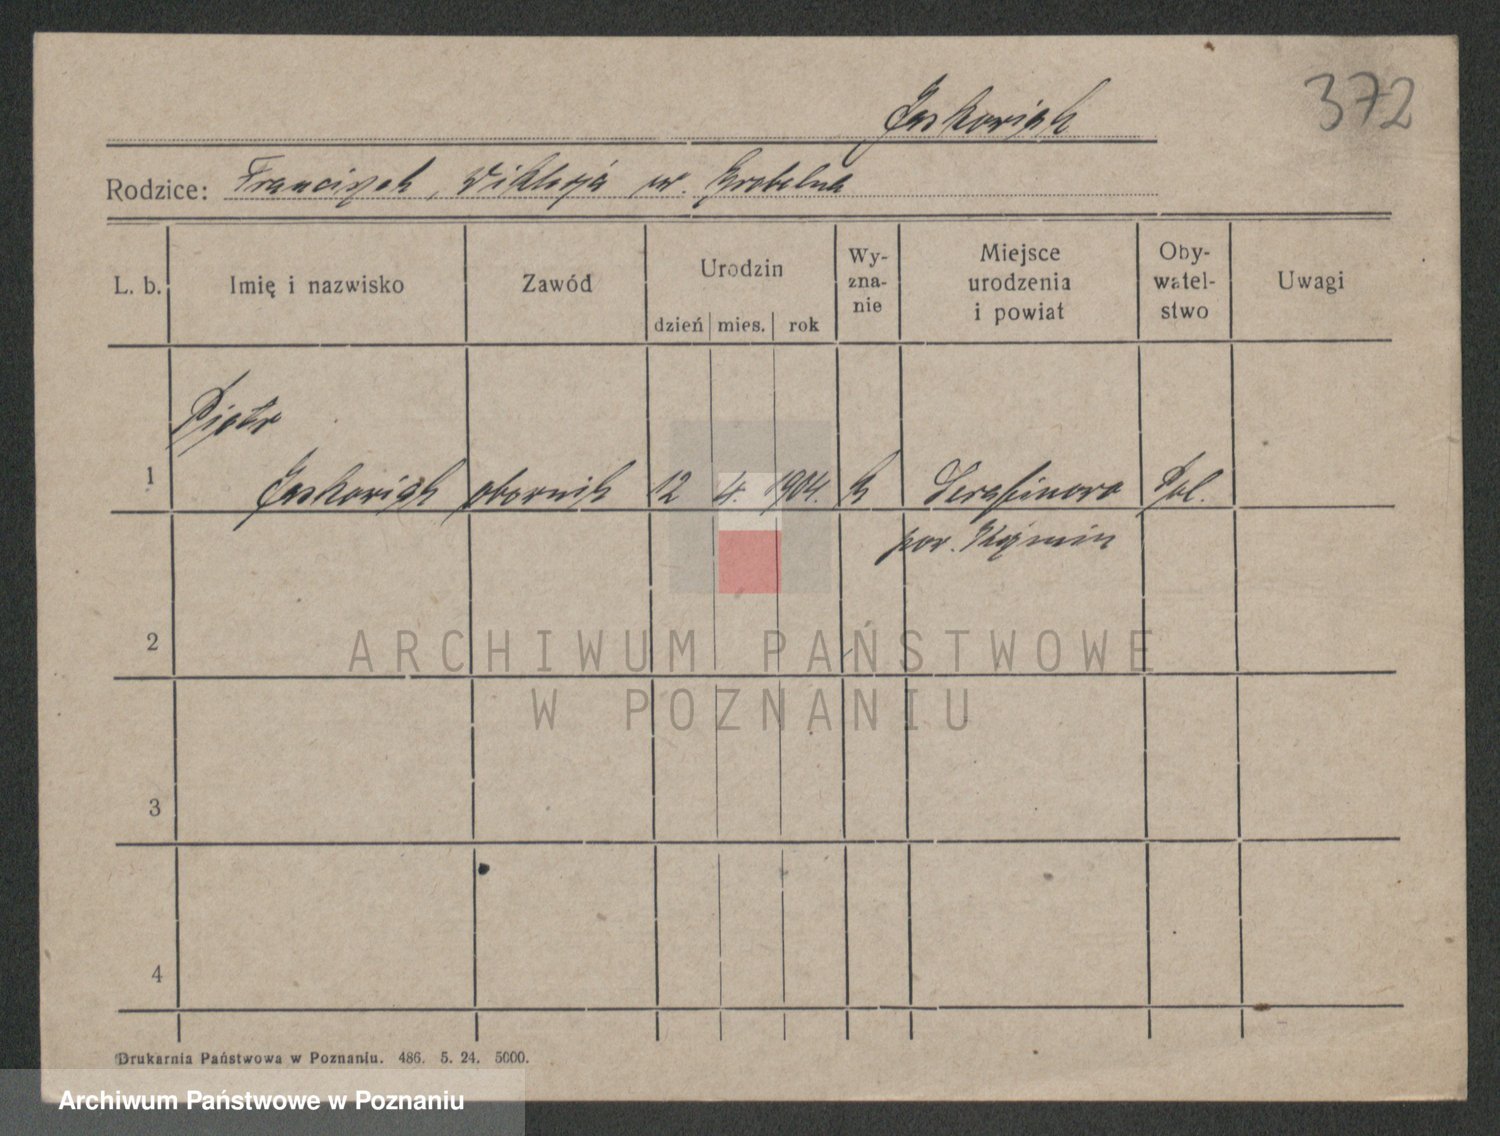 372
Jaskowiak
Rodzice: Franciszek, Wiktorja ur. Grobelna
L. b. Imię i nazwisko Zawód Urodzin Wy-zna-nie Miejsce urodzenia i powiat Oby-watel-stwo Uwagi
dzień mies. rok
Piotr
1 Jaskowiak 12 4. 1904. k Serafinowo Pol.
pow. Koźmin
2
3
4
Drukarnia Państwowa w Poznaniu. 486. 5. 24. 5000.
ARCHIWUM PAŃSTWOWE
W POZNANIU
Archiwum Państwowe w Poznaniu